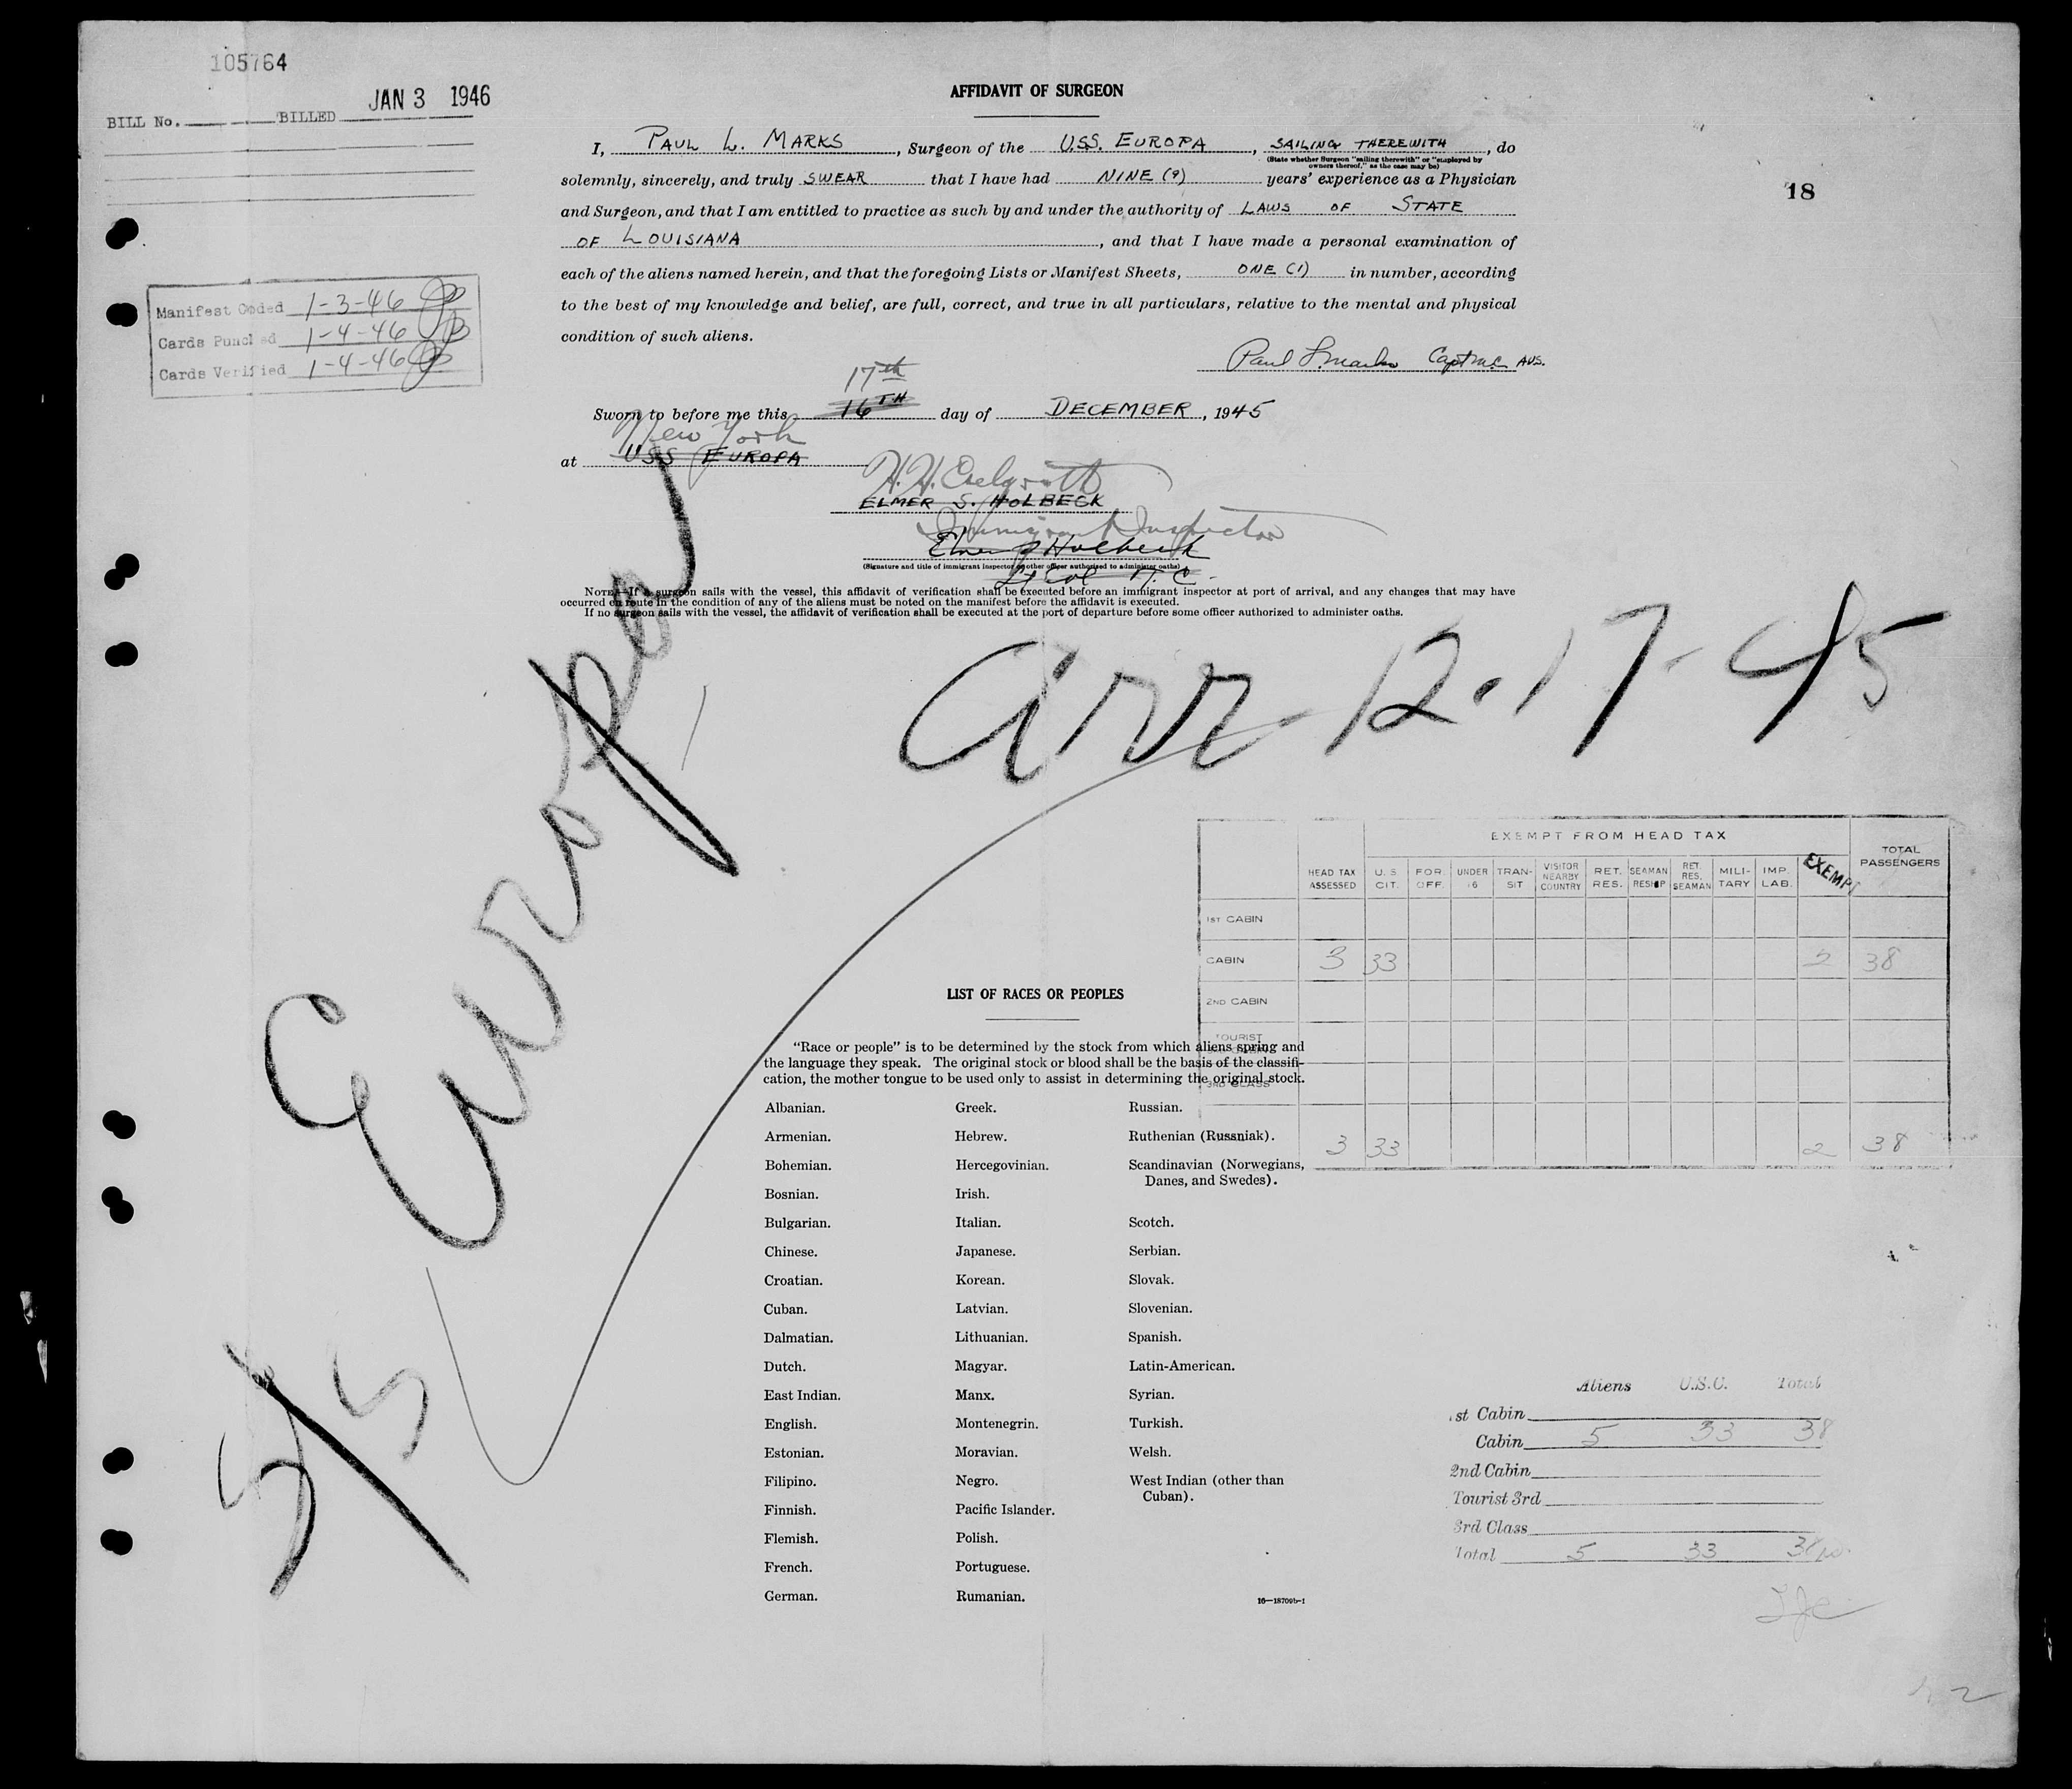 105764
BILL No. BILLED JAN 3 1946
AFFIDAVIT OF SURGEON
I, PAUL L. MARKS, Surgeon of the U.S.S. EUROPA, SAILING THEREWITH, do
(State whether Surgeon "sailing therewith" or "employed by
owners thereof," as the case may be)
solemnly, sincerely, and truly SWEAR that I have had NINE (9) years' experience as a Physician
18
and Surgeon, and that I am entitled to practice as such by and under the authority of LAWS OF STATE
OF LOUISIANA, and that I have made a personal examination of
each of the aliens named herein, and that the foregoing Lists or Manifest Sheets, ONE (1) in number, according
to the best of my knowledge and belief, are full, correct, and true in all particulars, relative to the mental and physical
condition of such aliens.
Manifest Coded 1-3-46
Cards Punched 1-4-46
Cards Verified 1-4-46
Paul L. Marks Capt MC AUS.
17th
Sworn to before me this 16TH day of DECEMBER, 1945
New York
at USS EUROPA
H. H.
ELMER S. HOLBECK
Immigrant Inspector
Elmer S Holbeck
(Signature and title of immigrant inspector or other officer authorized to administer oaths)
Lt Col T.C.
NOTE.—If a surgeon sails with the vessel, this affidavit of verification shall be executed before an immigrant inspector at port of arrival, and any changes that may have
occurred en route in the condition of any of the aliens must be noted on the manifest before the affidavit is executed.
If no surgeon sails with the vessel, the affidavit of verification shall be executed at the port of departure before some officer authorized to administer oaths.
arr 12-17-45
S/S Europa
EXEMPT FROM HEAD TAX
HEAD TAX ASSESSED U.S. CIT. FOR. OFF. UNDER 16 TRANSIT VISITOR NEARBY COUNTRY RET. RES. SEAMAN RESHIP RET. RES. SEAMAN MILITARY IMP. LAB. EXEMPT TOTAL PASSENGERS
1ST CABIN
CABIN 3 33 2 38
2ND CABIN
TOURIST
3RD CLASS
3 33 2 38
LIST OF RACES OR PEOPLES
"Race or people" is to be determined by the stock from which aliens spring and
the language they speak. The original stock or blood shall be the basis of the classifi-
cation, the mother tongue to be used only to assist in determining the original stock.
Albanian.
Armenian.
Bohemian.
Bosnian.
Bulgarian.
Chinese.
Croatian.
Cuban.
Dalmatian.
Dutch.
East Indian.
English.
Estonian.
Filipino.
Finnish.
Flemish.
French.
German.
Greek.
Hebrew.
Hercegovinian.
Irish.
Italian.
Japanese.
Korean.
Latvian.
Lithuanian.
Magyar.
Manx.
Montenegrin.
Moravian.
Negro.
Pacific Islander.
Polish.
Portuguese.
Rumanian.
Russian.
Ruthenian (Russniak).
Scandinavian (Norwegians,
Danes, and Swedes).
Scotch.
Serbian.
Slovak.
Slovenian.
Spanish.
Latin-American.
Syrian.
Turkish.
Welsh.
West Indian (other than
Cuban).
16—18709b-1
Aliens U.S.C. Total
1st Cabin
Cabin 5 33 38
2nd Cabin
Tourist 3rd
3rd Class
Total 5 33 38